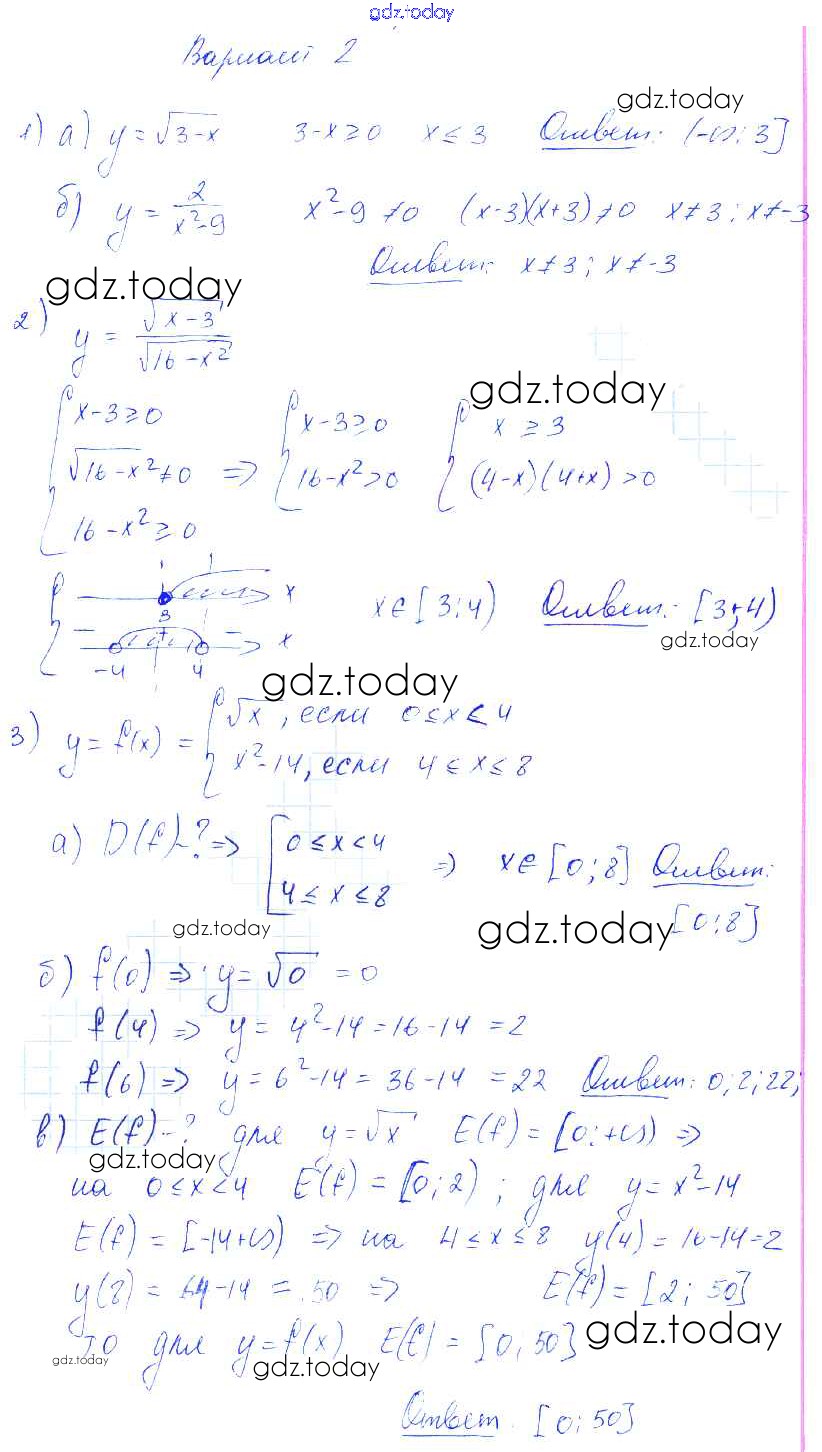 gdz.today
Вариант 2
gdz.today
1) а) y = √(3-x)   3-x ≥ 0   x ≤ 3   Ответ: (-∞; 3]
б) y = 2/(x²-9)   x²-9 ≠ 0   (x-3)(x+3) ≠ 0   x ≠ 3; x ≠ -3
Ответ: x ≠ 3; x ≠ -3
gdz.today
2) y = √(x-3)/√(16-x²)
gdz.today
{ x-3 ≥ 0   { x-3 ≥ 0   { x ≥ 3
√(16-x²) ≠ 0 => 16-x² > 0   (4-x)(4+x) > 0
16-x² ≥ 0
3 x
x ∈ [3;4)   Ответ: [3;4)
gdz.today
- + - x
-4 4
gdz.today
3) y = f(x) = { √x, если 0 ≤ x < 4
x²-14, если 4 ≤ x ≤ 8
а) D(f)-? => [ 0 ≤ x < 4
4 ≤ x ≤ 8 => x ∈ [0;8] Ответ:
gdz.today
gdz.today
[0;8]
б) f(0) => y = √0 = 0
f(4) => y = 4²-14 = 16-14 = 2
f(6) => y = 6²-14 = 36-14 = 22   Ответ: 0; 2; 22;
в) E(f)-? для y = √x   E(f) = [0;+∞) =>
gdz.today
на 0 ≤ x < 4   E(f) = [0;2); для y = x²-14
E(f) = [-14+∞) => на 4 ≤ x ≤ 8   y(4) = 16-14 = 2
y(8) = 64-14 = 50 =>   E(f) = [2; 50]
то для y = f(x)   E(f) = [0; 50]
gdz.today
gdz.today
gdz.today
Ответ. [0; 50]